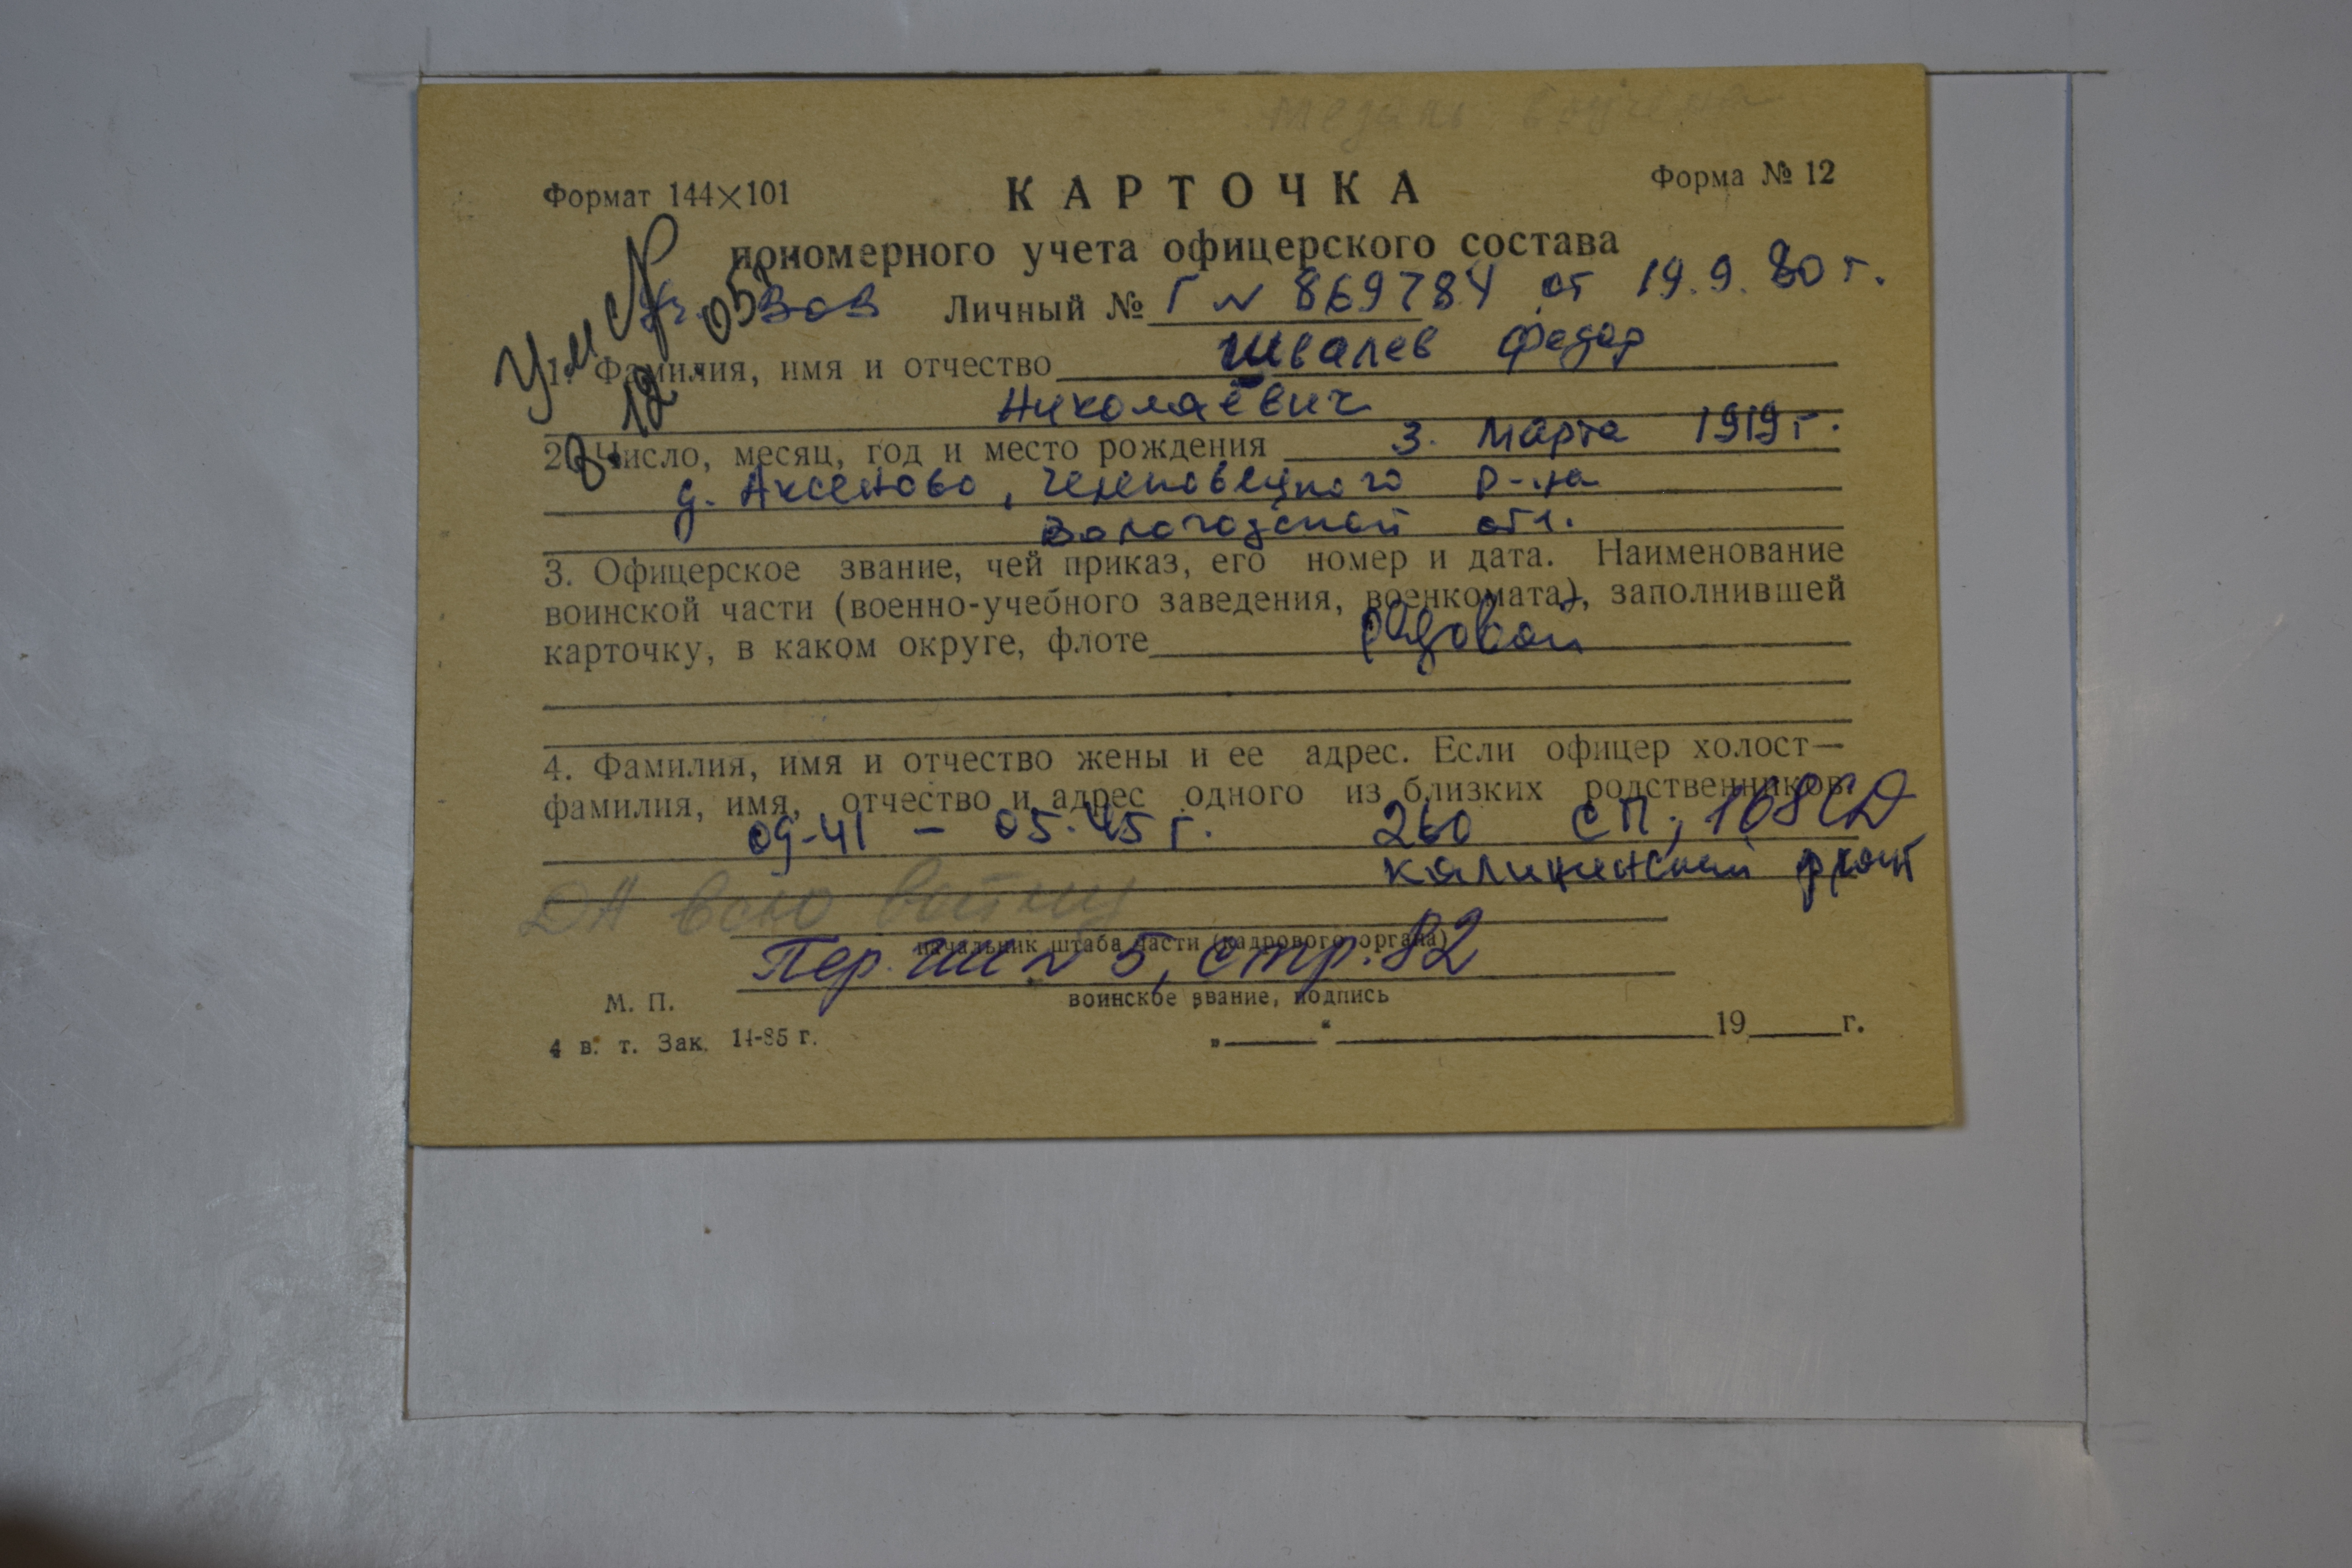 медаль вручена
Формат 144×101
КАРТОЧКА
Форма № 12
пономерного учета офицерского состава
Умер
ВОВ Личный № Г № 869784 от 19.9.80 г.
1. Фамилия, имя и отчество Швалев Федор
Николаевич
2. Число, месяц, год и место рождения 3. Марта 1919 г.
д. Аксеново, Череповецкого р-на
Вологодской обл.
3. Офицерское звание, чей приказ, его номер и дата. Наименование
воинской части (военно-учебного заведения, военкомата), заполнившей
карточку, в каком округе, флоте рядовой
4. Фамилия, имя и отчество жены и ее адрес. Если офицер холост—
фамилия, имя, отчество и адрес одного из близких родственников.
09-41 – 05.45 г. 260 СП, 168 СД
Калининский фронт
ДА всю войну
начальник штаба части (кадрового органа)
Пер. № 5, стр. 82
М. П.
воинское звание, подпись
4 в. т. Зак. 14-85 г.
„ “ 19 г.